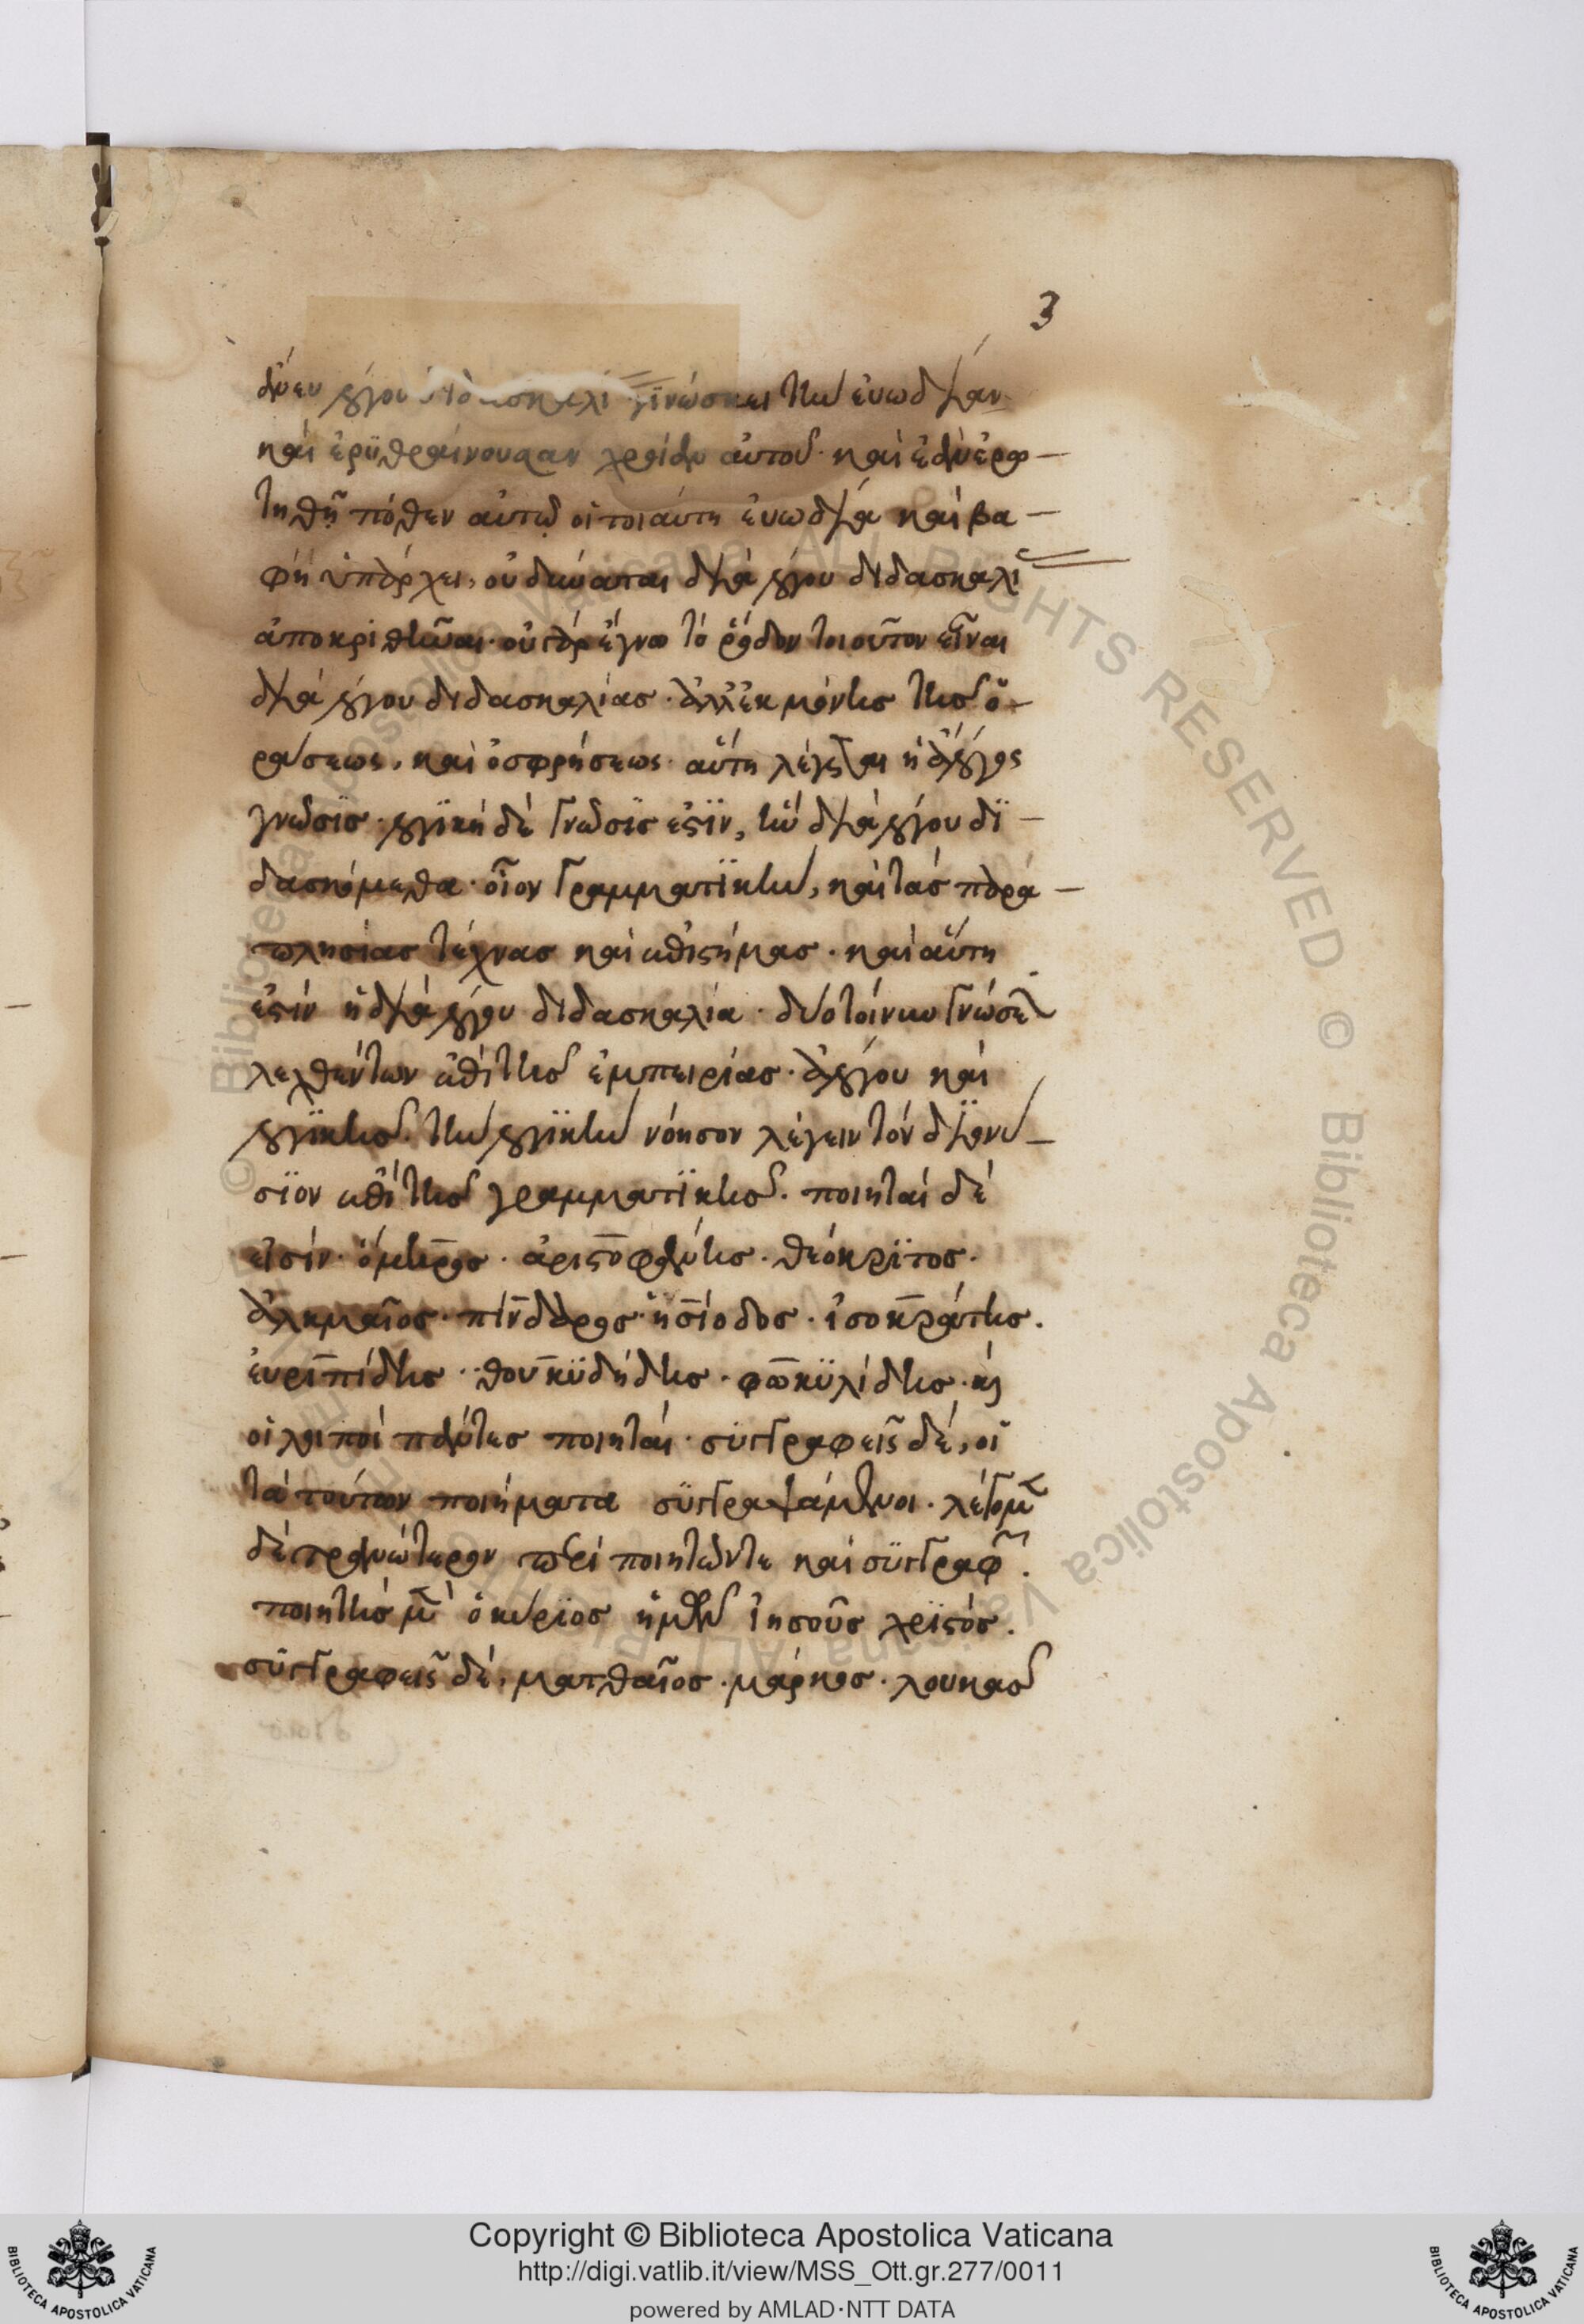 3
ἄνευ λόγου διδασκαλί γϊνώσκει τὴν ἐυωδίαν
καὶ ἐρϋθραίνουσαν χροίαν αὐτοῦ· καὶ ἐὰν ἐρω—
τηθῇ πόθεν αὐτῷ οἱ τοιάυτη ἐυωδία καὶ βα—
φὴ ὑπάρχει, οὐ δύναται διὰ λόγου διδασκαλί
ἀποκριθῆναι· οὐ γὰρ ἔγνω τὸ ῥόδον τοιοῦτον εἶναι
διὰ λόγου διδασκαλίας· ἀλλ' ἐκ μόνης τῆς ὁ—
ράσεως, καὶ ὀσφρήσεως· αὕτη λέγεται ἡ ἄλογος
γνῶσϊς· λογϊκὴ δὲ γνῶσϊς ἐστϊν, ἣν διὰ λόγου δϊ—
δασκόμεθα· οἷον γραμματϊκὴν, καὶ τὰς παρα—
πλησίας τέχνας καὶ ἐπιστήμας· καὶ αὕτη
ἐστὶν ἡ διὰ λόγου διδασκαλία· δύο τοίνυν γνώσε
λεχθέντων ἐπὶ τῆς ἐμπειρίας· ἀλόγου καὶ
λογϊκῆς· τὴν λογϊκὴν νόησον λέγειν τὸν διονυ—
σϊον ἐπὶ τῆς γραμματϊκῆς· ποιηταὶ δέ
εἰσίν· ὅμηρος· ἀριστοφάνης· θεόκρϊτος·
ἀλκμαῖος· πίνδαρος· ἡσίοδος· ἰσοκράτης·
ἐυριπίδης· θουκϋδήδης· φωκϋλίδης· κὶ
οἱ λοιποὶ πάντες ποιηταί· σϋγγραφεῖς δὲ, οἱ
τὰ τούτων ποιήματα σϋγγραψάμενοι· λέγομεν
δὲ τρανώτερον περὶ ποιητῶν τε καὶ σϋγγραφ·
ποιητὴς μὲν ὁ κύρϊος ἡμῶν ἰησοῦς χρϊστός·
σϋγγραφεῖς δὲ, ματθαῖος· μάρκος· λουκας
Copyright © Biblioteca Apostolica Vaticana
http://digi.vatlib.it/view/MSS_Ott.gr.277/0011
powered by AMLAD·NTT DATA